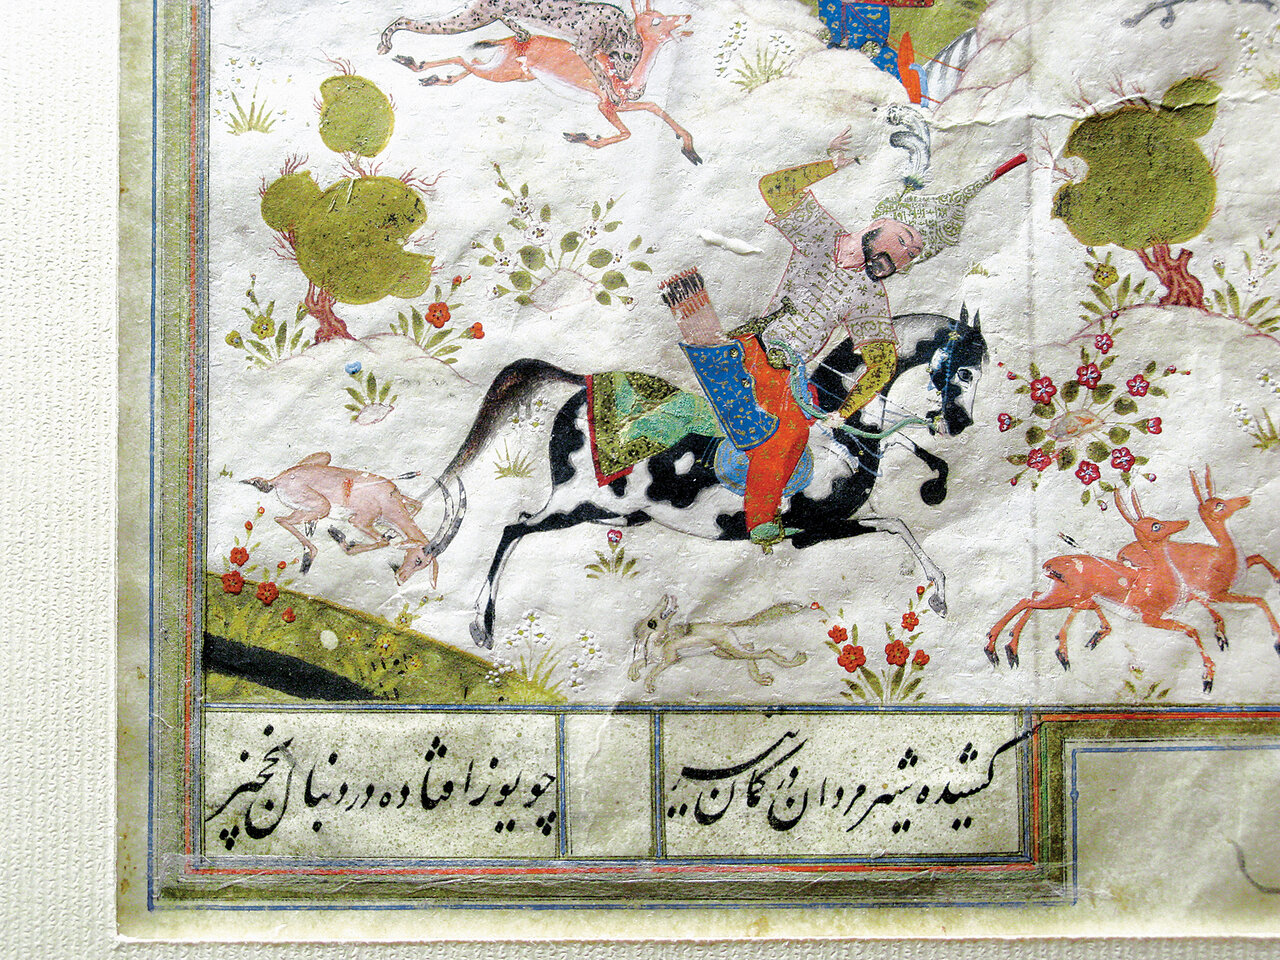 کشیده شیر مردان در کمان تیر
چو یوز افتاده در دنبال نخجیر